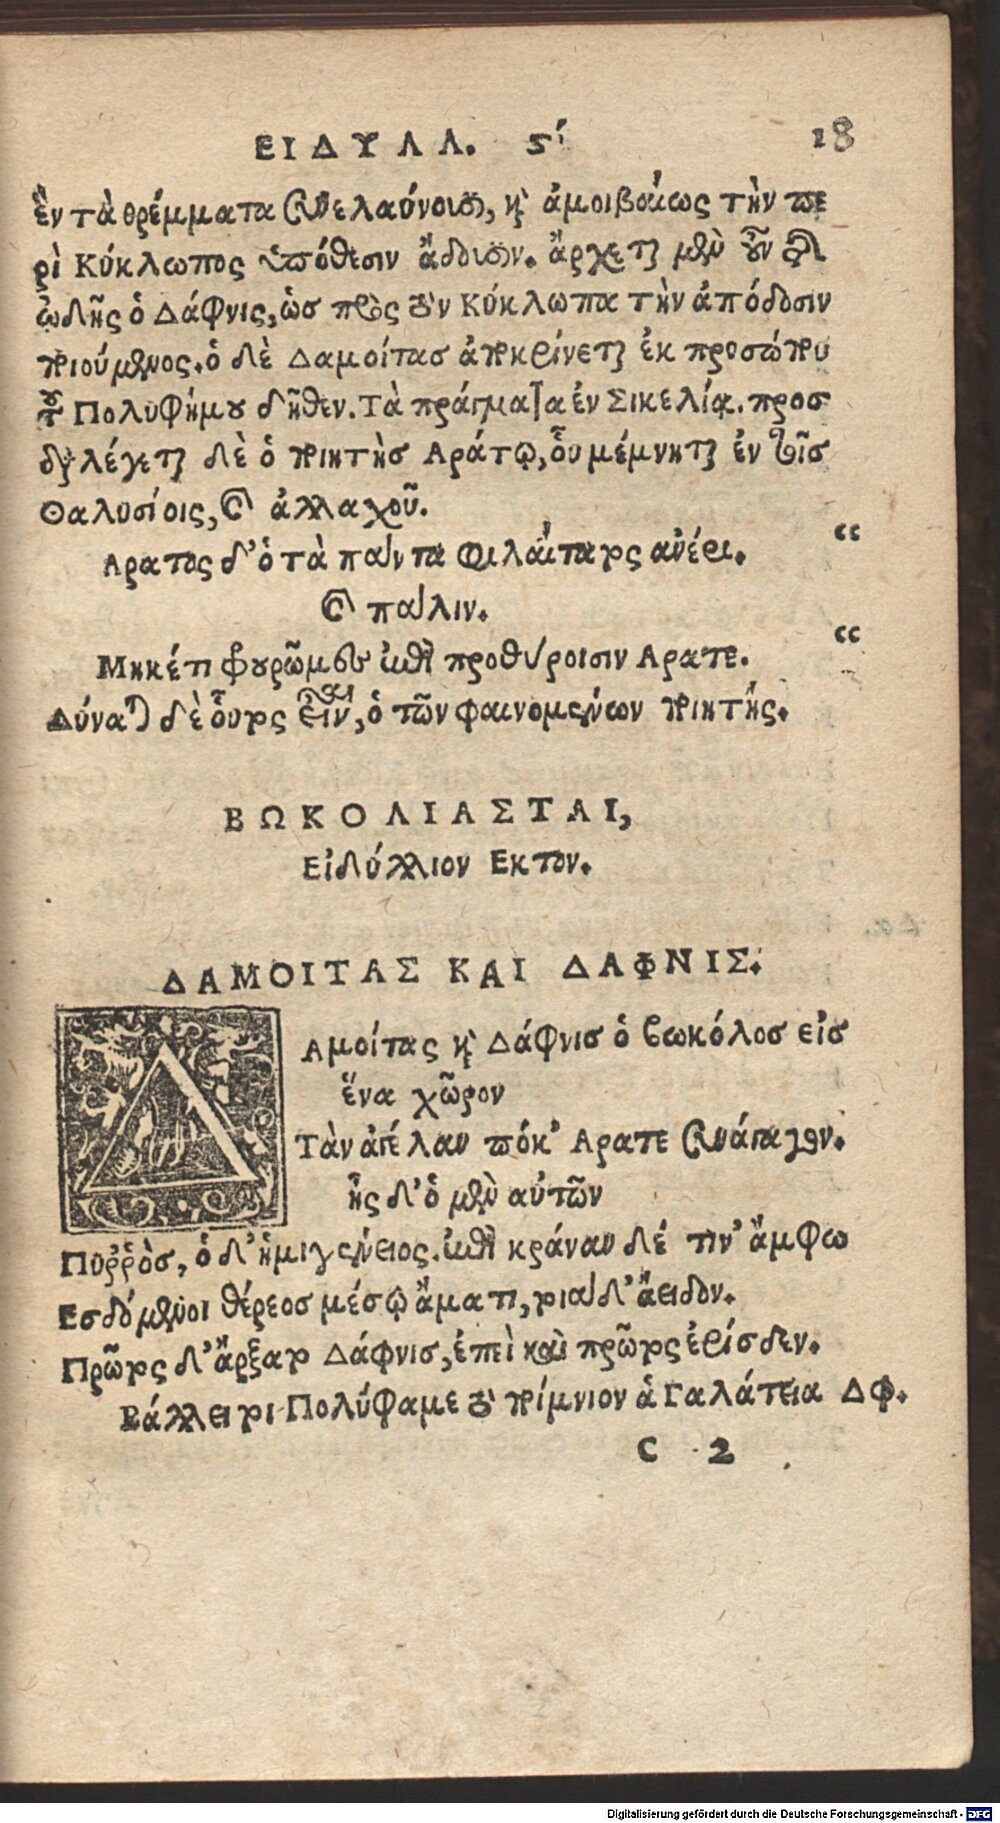 ΕΙΔΥΛΛ. ϛ΄ 18
ἓν τὰ θρέμματα συνελαύνουσι, καὶ ἀμοιβαίως τὴν πε
ρὶ Κύκλωπος ὑπόθεσιν ᾄδουσιν. ἄρχεται μὲν οὖν τῆς
ᾠδῆς ὁ Δάφνις, ὡς πρὸς τὸν Κύκλωπα τὴν ἀπόδοσιν
ποιούμενος. ὁ δὲ Δαμοίτας ἀποκρίνεται ἐκ προσώπου
τοῦ Πολυφήμου δῆθεν. Τὰ πράγματα ἐν Σικελίᾳ. προσ
διαλέγεται δὲ ὁ ποιητὴς Αράτῳ, οὗ μέμνηται ἐν τοῖς
Θαλυσίοις, καὶ ἀλλαχοῦ.
Αρατος δ' ὁ τὰ πάντα φιλαίτατος ἀνέρι. “
καὶ πάλιν.
Μηκέτι φρουρῶμες ἐπὶ προθύροισιν Αρατε. “
Δύναται δὲ οὗτος εἶναι, ὁ τῶν φαινομένων ποιητής.
ΒΩΚΟΛΙΑΣΤΑΙ,
Εἰδύλλιον Εκτον.
ΔΑΜΟΙΤΑΣ ΚΑΙ ΔΑΦΝΙΣ.
ΔΑμοίτας καὶ Δάφνις ὁ βωκόλος εἰς
ἕνα χῶρον
Τὰν ἀγέλαν πόκ' Αρατε συνάγαγον.
ἦς δ' ὁ μὲν αὐτῶν
Πυῤῥὸς, ὁ δ' ἡμιγένειος. ἐπὶ κράναν δέ τιν' ἄμφω
Εσδόμενοι θέρεος μέσῳ ἄματι, τοιάδ' ἄειδον.
Πρᾶτος δ' ἄρξατο Δάφνις, ἐπεὶ καὶ πρᾶτος ἐρίσδεν.
Βάλλει τοι Πολύφαμε τὸ ποίμνιον ἁ Γαλάτεια Δφ.
C 2
Digitalisierung gefördert durch die Deutsche Forschungsgemeinschaft - DFG